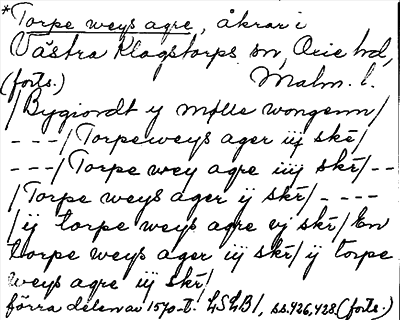 *Torpe weys agre, åkrar i
Västra Klagstorps sn, Oxie hd,
(forts.) Malm. l.
/Bygiondt y mølle wongenn/
---/Torpeweys ager iij skr/
---/Torpe wey agre iiij skr/--
/Torpe weys ager ij skr/----
/ij torpe weys agre vj skr/En
torpe weys ager iij skr/ij torpe
weys agre iij skr/
förra delen av 1570-t. LSLB1, ss.426,428.(forts.)